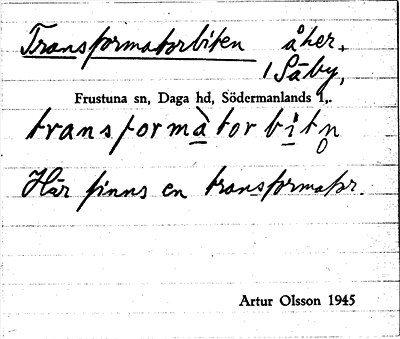 Transformatorbiten åker,
/ Säby,
Frustuna sn, Daga hd, Södermanlands l,.
transformàtorbitn̥
Här finns en transformator.
Artur Olsson 1945